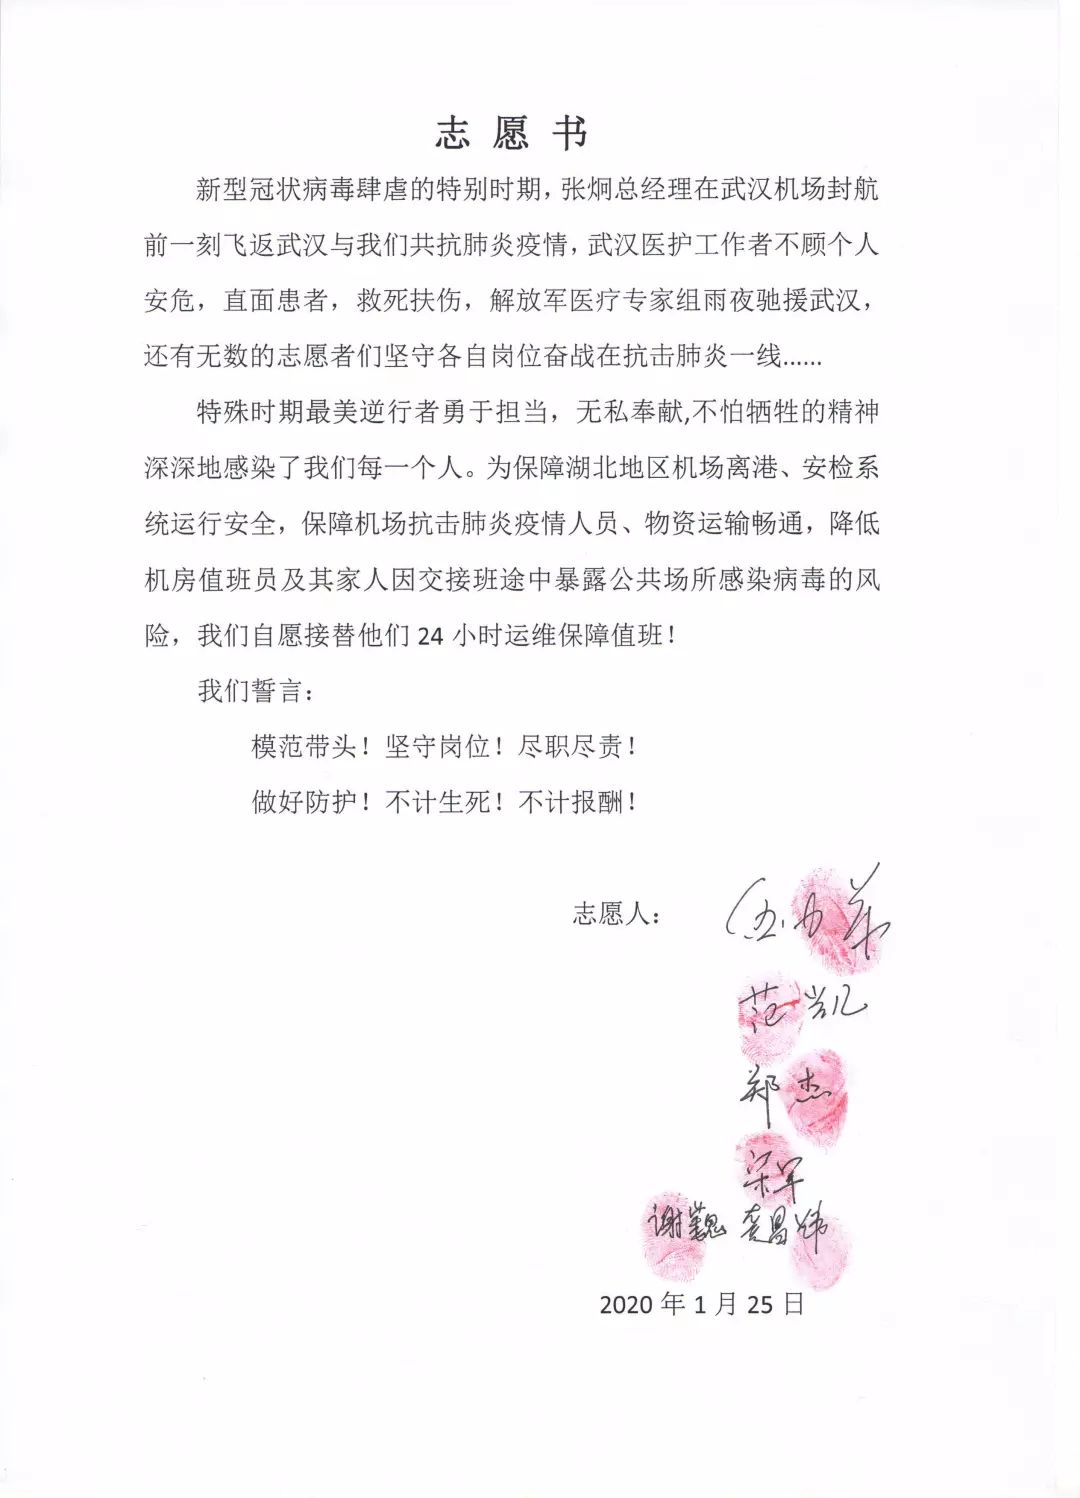 志愿书
新型冠状病毒肆虐的特别时期，张炯总经理在武汉机场封航
前一刻飞返武汉与我们共抗肺炎疫情，武汉医护工作者不顾个人
安危，直面患者，救死扶伤，解放军医疗专家组雨夜驰援武汉，
还有无数的志愿者们坚守各自岗位奋战在抗击肺炎一线......
特殊时期最美逆行者勇于担当，无私奉献,不怕牺牲的精神
深深地感染了我们每一个人。为保障湖北地区机场离港、安检系
统运行安全，保障机场抗击肺炎疫情人员、物资运输畅通，降低
机房值班员及其家人因交接班途中暴露公共场所感染病毒的风
险，我们自愿接替他们 24 小时运维保障值班！
我们誓言：
模范带头！坚守岗位！尽职尽责！
做好防护！不计生死！不计报酬！
志愿人：
范凯
郑杰
宋军
谢巍 龚昌炜
2020 年 1 月 25 日